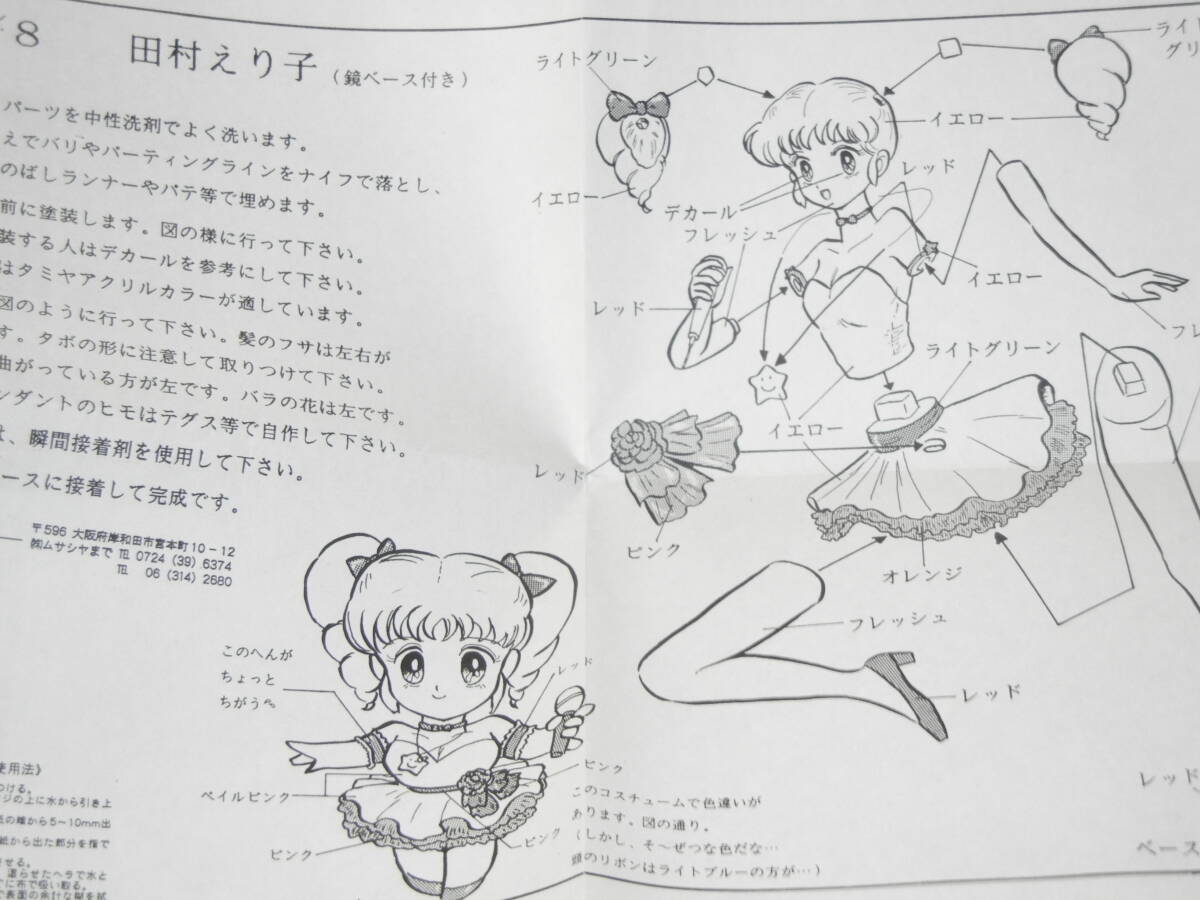 8 田村えり子 (鏡ベース付き)
パーツを中性洗剤でよく洗います。
えでバリやパーティングラインをナイフで落とし、
のばしランナーやパテ等で埋めます。
前に塗装します。図の様に行って下さい。
装する人はデカールを参考にして下さい。
はタミヤアクリルカラーが適しています。
図のように行って下さい。髪のフサは左右が
す。タボの形に注意して取りつけて下さい。
曲がっている方が左です。バラの花は左です。
ンダントのヒモはテグス等で自作して下さい。
は、瞬間接着剤を使用して下さい。
ースに接着して完成です。
〒596 大阪府岸和田市宮本町10-12
㈱ムサシヤまで TEL 0724 (39) 6374
TEL 06 (314) 2680
ライトグリーン
イエロー
デカール
フレッシュ
イエロー
レッド
ライト
グリ
イエロー
レッド
フレ
ライトグリーン
イエロー
レッド
ピンク
オレンジ
フレッシュ
レッド
レッド
ベース
このへんが
ちょっと
ちがう
レッド
ペイルピンク
ピンク
ピンク
ピンク
このコスチュームで色違いが
あります。図の通り。
(しかし、そ〜ぜつな色だな…
頭のリボンはライトブルーの方が…)
使用法》
つける。
ジの上に水から引き上
紙の端から5〜10mm出
紙から出た部分を指で
させる。
濡らせたヘラで水と
に布で吸い取る。